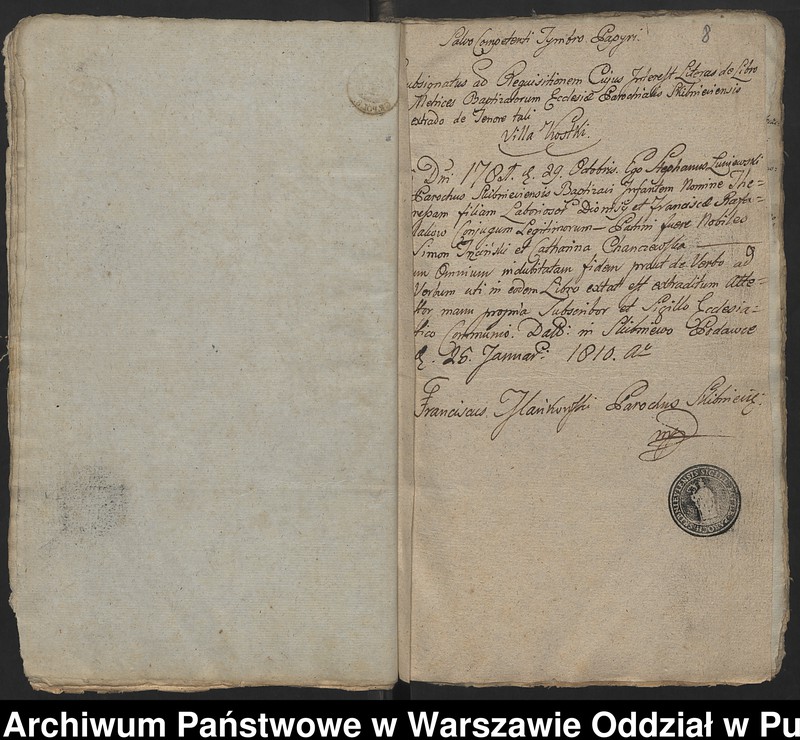 8
Salvo Competenti Tymbro Papyri.
ubsignatus ad Requisitionem Cujus Interest Literas de Libro
Metrices Baptizatorum Ecclesiæ Parochialis Skibnieviensis
extrado de Tenore tali
Villa Kostki.
Dni 178 d. 29. Octobris. Ego Stephanus
Parochus Skibnieviensis Baptizavi Infantem Nomine The=
resam filiam Laboriosor Dionisy et Franciscæ
Conjugum Legitimorum – Patrini fuere Nobiles
Simon et Catharina
um Omnium indubitatam fidem prout de Verbo ad
Verbum uti in eodem Libro extat est extraditum Atte=
stor manu propria Subscribor et Sigillo Ecclesia=
tico Communio. Datt: in Skibniewo Podawce
d. 25. Januar: 1810. Ao
Franciscus Parochus Skibnieviē:
mp
Archiwum Państwowe w Warszawie Oddział w Pu